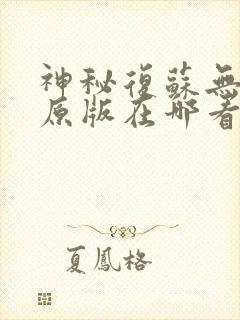 神秘復蘇無
原版在哪看
夏鳳格